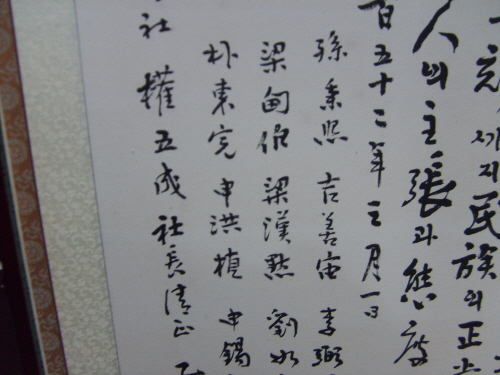 까지民族의正當
人의主張과態度
百五十二年三月一日
孫秉熙 吉善宙 李弼
梁甸伯 梁漢黙 劉如
朴東完 申洪植 申錫
社 權五成 社長淸正